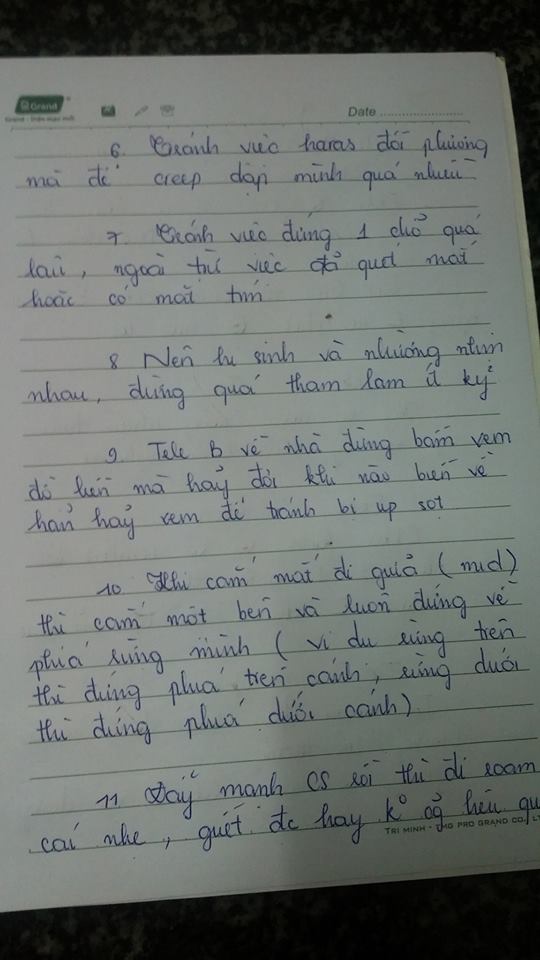 Grand
Date
6. Tránh việc haras đối phương
mà để creep dập mình quá nhiều
7. Tránh việc đứng 1 chổ quá
lâu, ngoài trừ việc đả quét mắt
hoặc có mắt tím
8 Nên hi sinh và nhường nhịn
nhau, đừng quá tham lam ít kỷ
9. Tele B về nhà đừng bấm xem
đồ liền mà hảy đợi khi nào biến về
hẳn hảy xem để tránh bị up sót
10. Khi cắm mắt đi giữa (mid)
thì cắm một bên và luôn đứng về
phía rừng mình (ví dụ rừng trên
thì đứng phía trên cánh, rừng dưới
thì đứng phía dưới cánh)
11 Đẩy mạnh CS rồi thì đi roam
cái nhẹ, giết đc hay ko
TRI MINH - PRO GRAND CO., LT